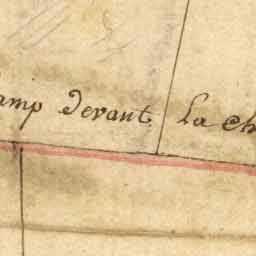 amp devant la ch